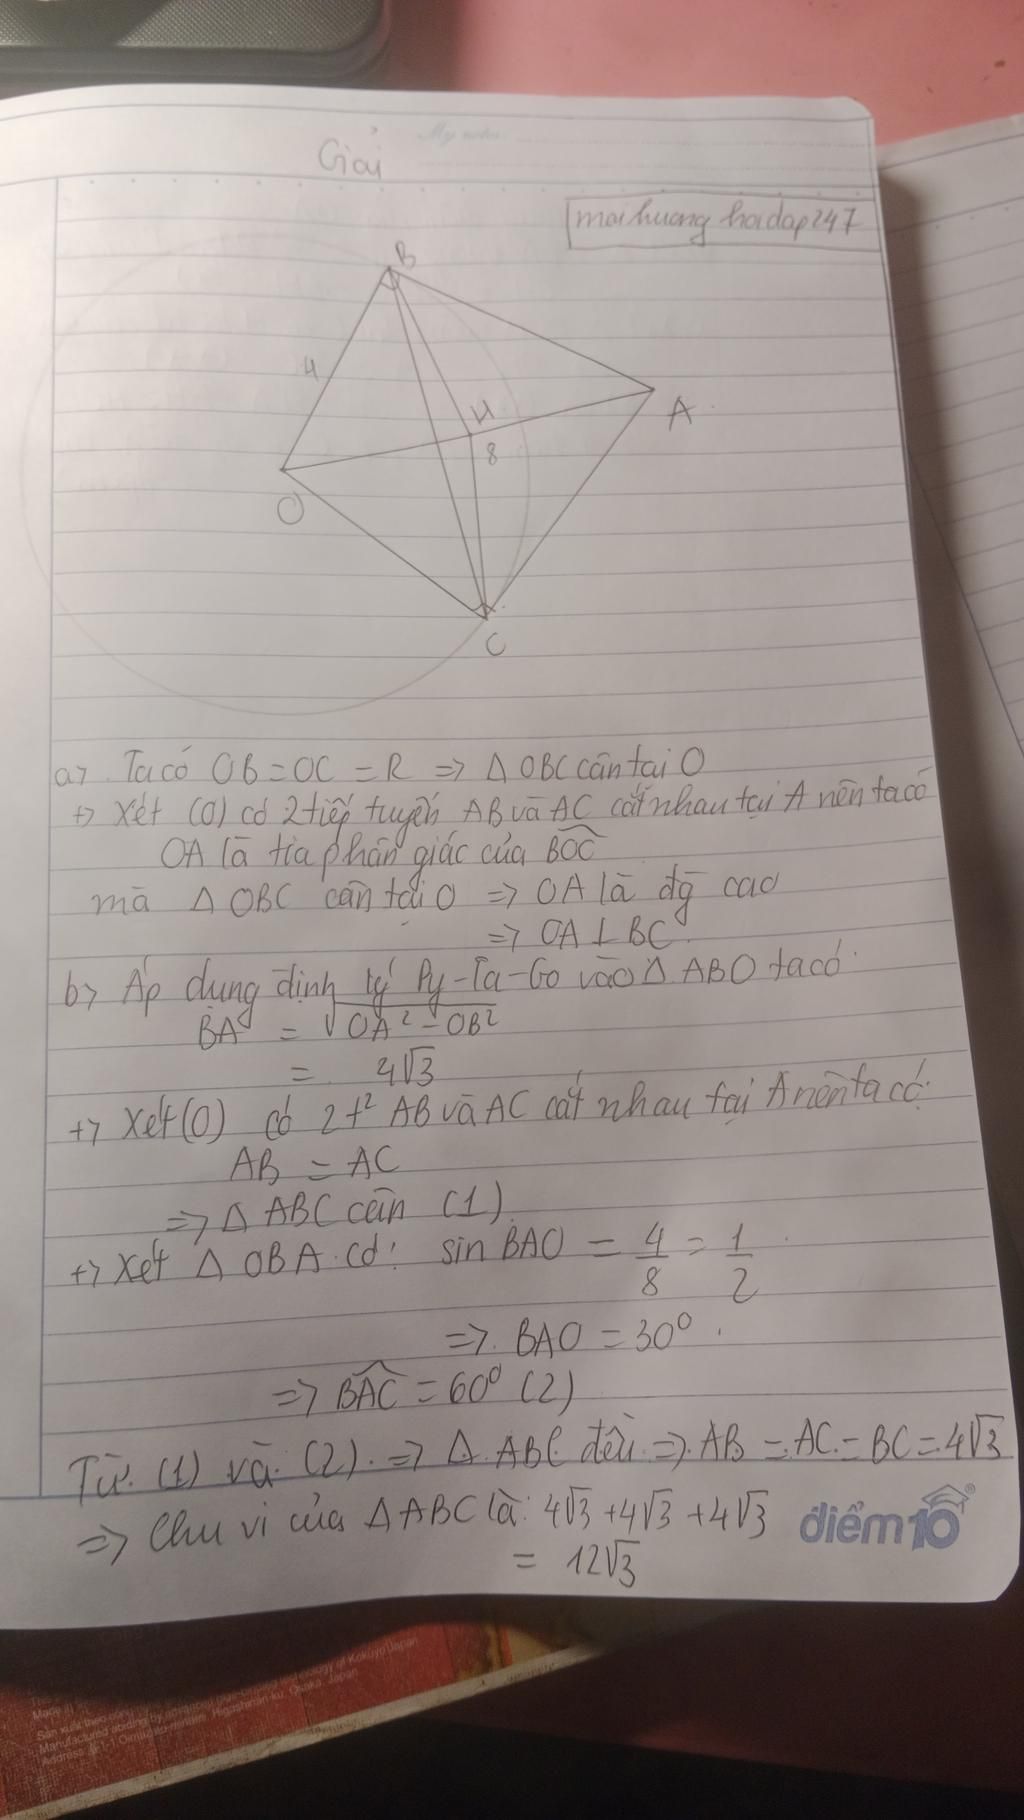 My notes
Giải
maihuong hoidap247
B
4
H
A
8
O
C
a> Ta có OB = OC = R => Δ OBC cân tại O
+> Xét (O) có 2 tiếp tuyến AB và AC cắt nhau tại A nên ta có
OA là tia phân giác của BOC
mà Δ OBC cân tại O => OA là đg cao
=> OA ⊥ BC
b> Áp dụng định lý Py-Ta-Go vào Δ ABO ta có
BA = √OA² - OB²
= 4√3
+> Xét (O) có 2t² AB và AC cắt nhau tại A nên ta có:
AB = AC
=> Δ ABC cân (1)
+> Xét Δ OBA có: sin BAO = 4/8 = 1/2
=> BAO = 30°
=> BAC = 60° (2)
Từ (1) và (2) => Δ ABC đều => AB = AC = BC = 4√3
=> Chu vi của Δ ABC là: 4√3 + 4√3 + 4√3
= 12√3
điểm10